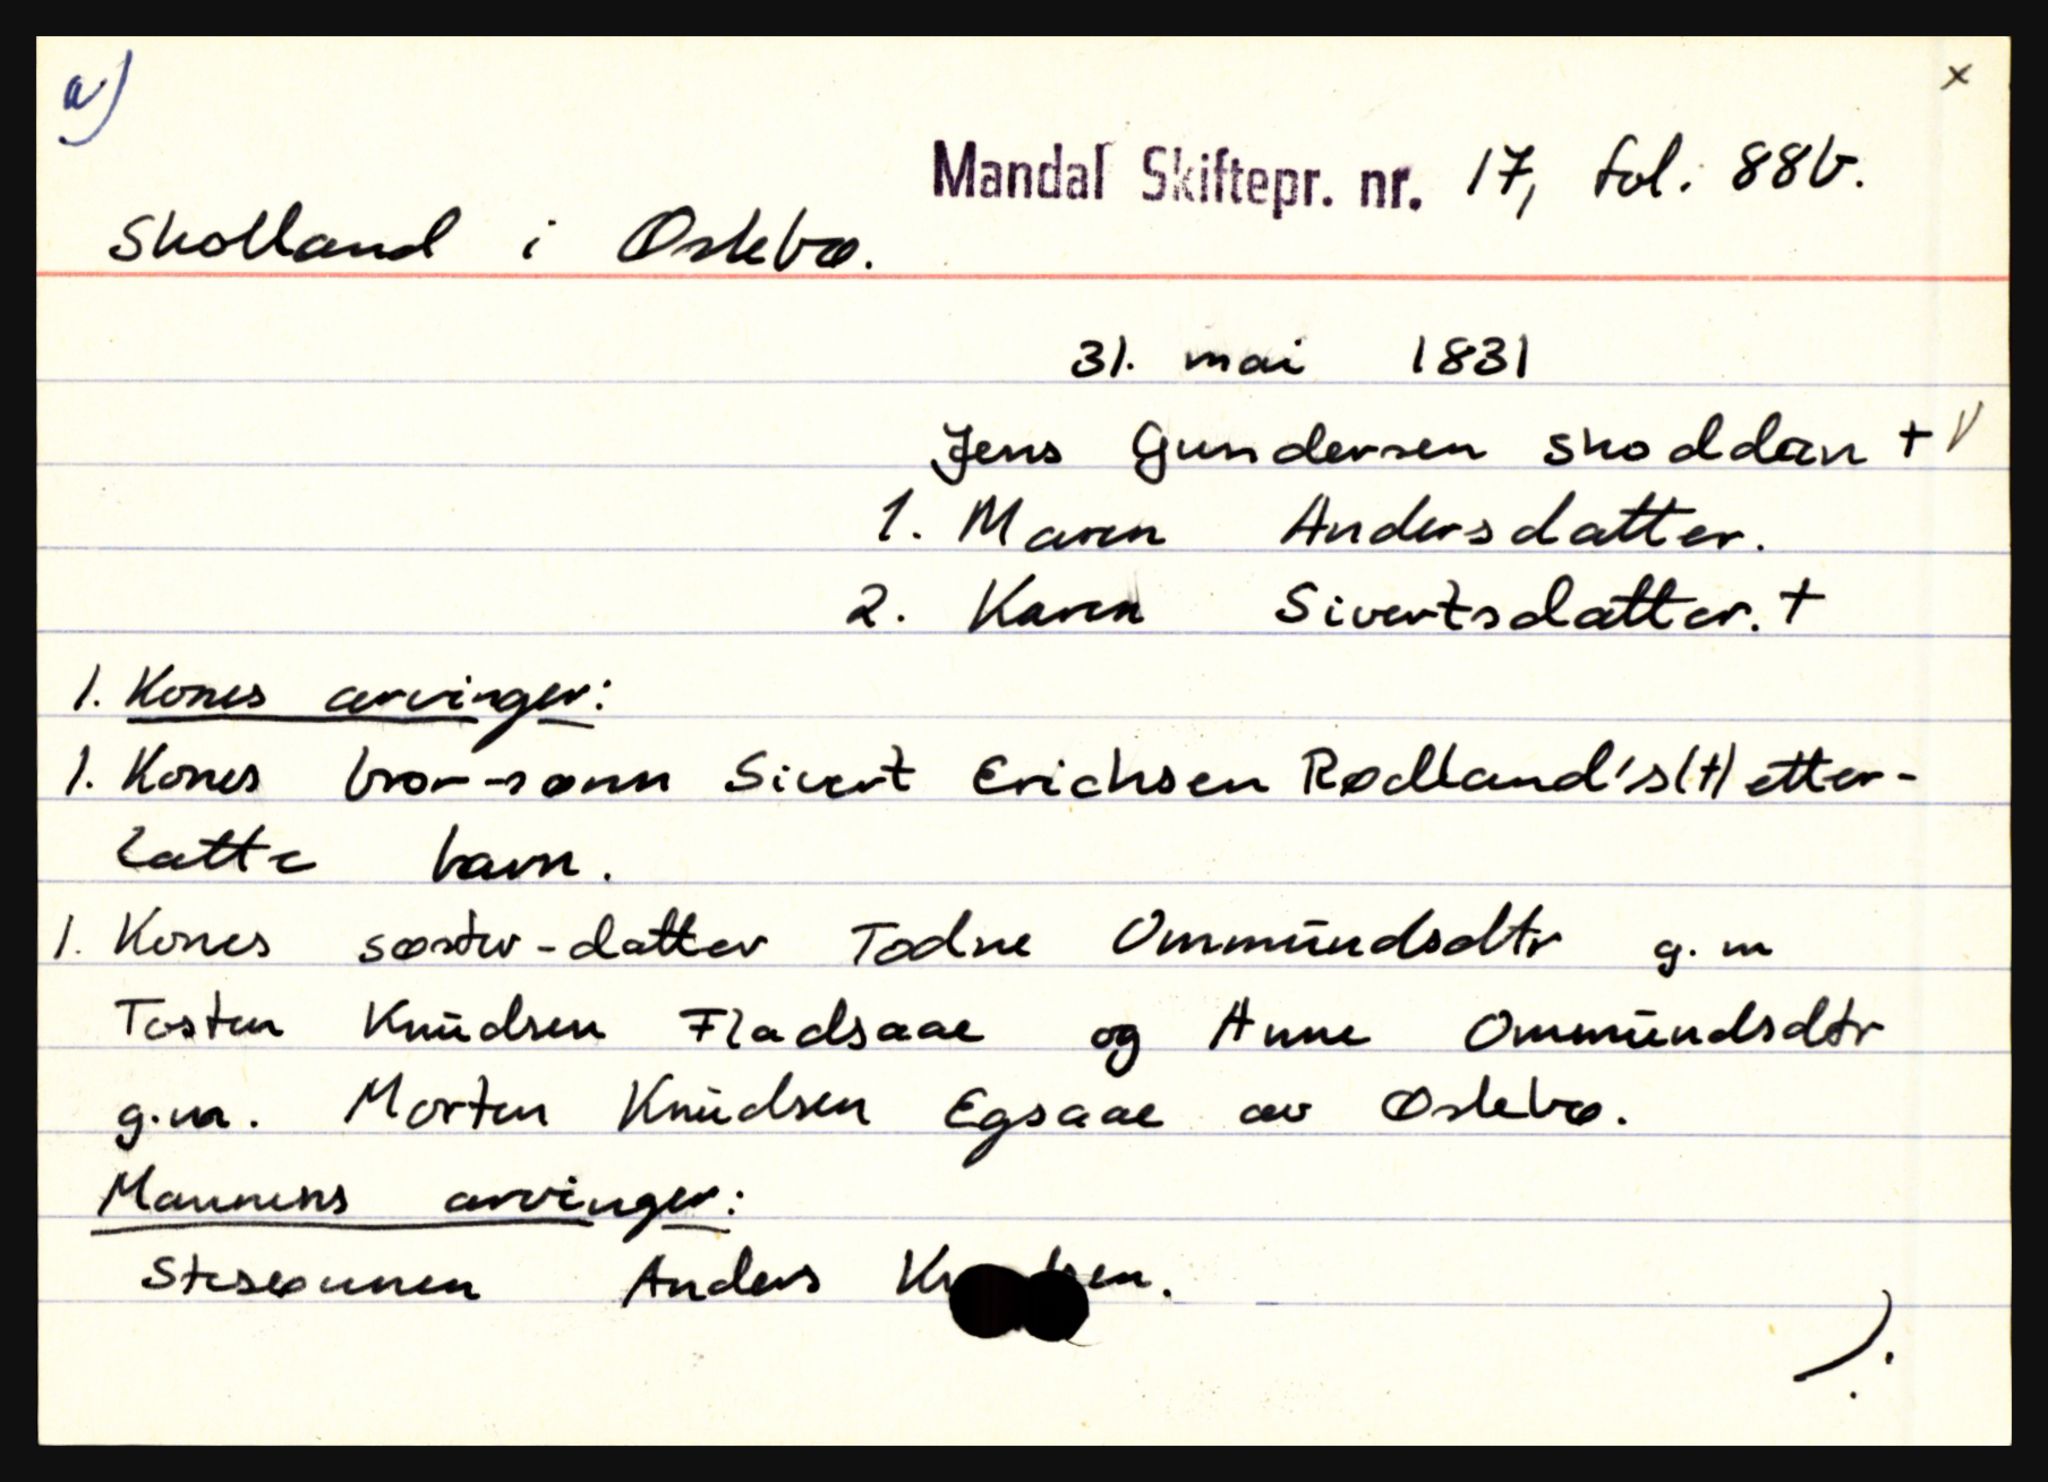 a) x
Mandal Skiftepr. nr. 17, fol. 88b.
Skolland i Øslebø.
31. mai 1831
Jens Gundersen Skoddan + V
1. Maren Andersdatter.
2. Karen Sivertsdatter. +
1. Kones arvinger:
1. Kones bror-sønn Sivert Erichsen Rødland's (+) etter-
latte barn.
1. Kones søster-datter Todne Ommundsdtr g. m
Tosten Knudsen Fladsaae og Anne Ommundsdtr
g.m. Morten Knudsen Egsaae av Øslebø.
Mannens arvinger:
Stesønnen Anders